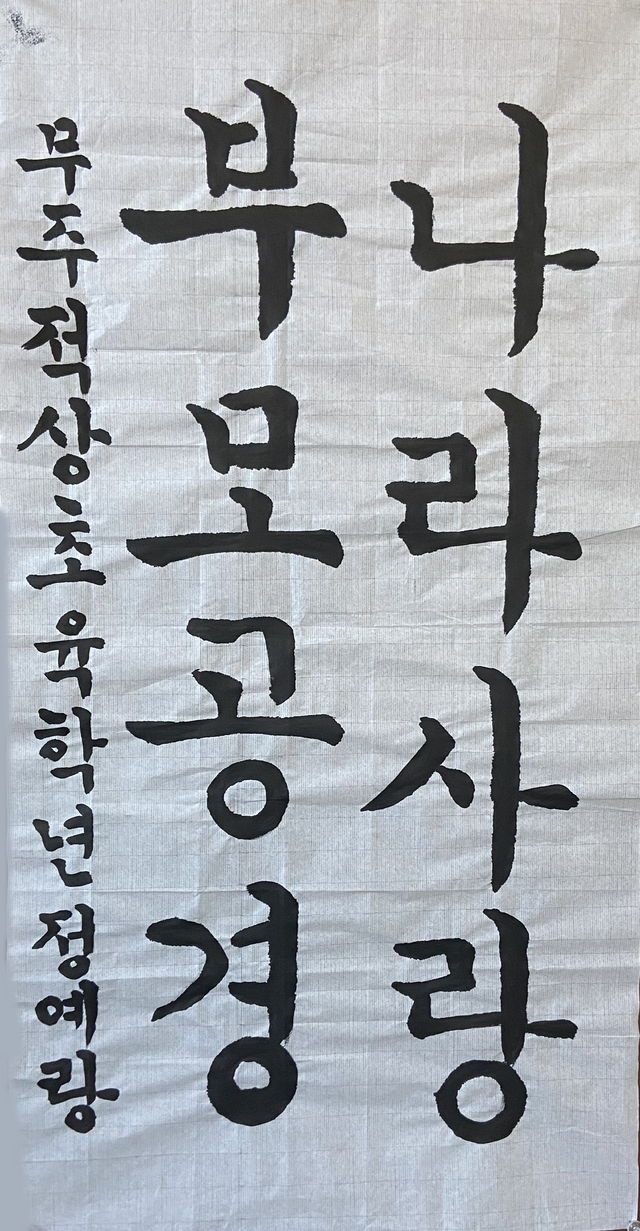 나라사랑
부모공경
무주적상초육학년정예랑